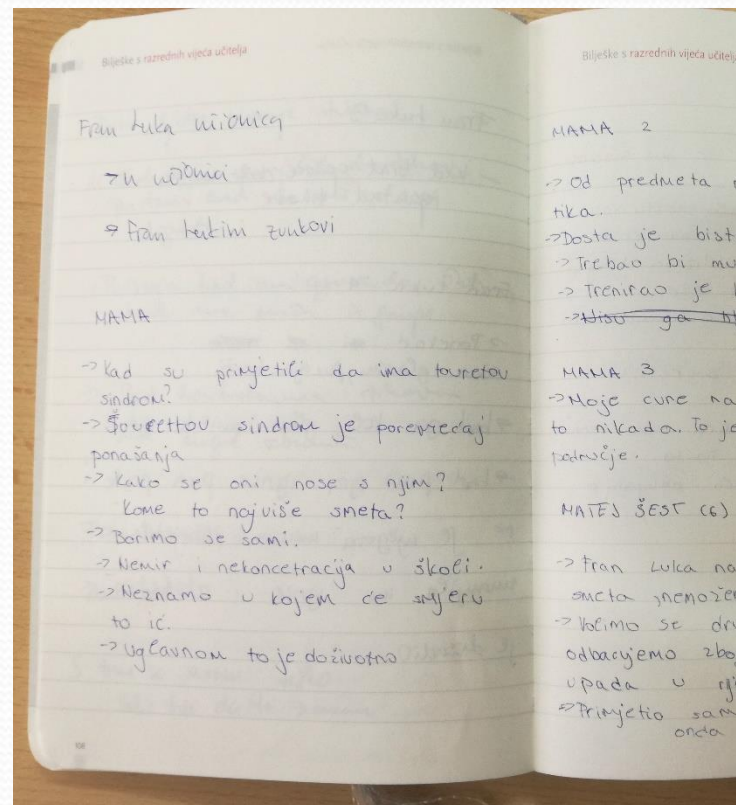 Bilješke s razrednih vijeća učitelja
Fran Luka učionica
-> u učionici
-> Fran Lukini zvukovi
MAMA
-> Kad su primjetili da ima touretov
sindrom?
-> Tourettov sindrom je poremećaj
ponašanja
-> Kako se oni nose s njim?
Kome to najviše smeta?
-> Borimo se sami.
-> Nemir i nekoncetracija u školi.
-> Neznamo u kojem će smjeru
to ić.
-> Uglavnom to je doživotno
Bilješke s razrednih vijeća učitelja
MAMA 2
-> Od predmeta
tika.
-> Dosta je bist
-> Trebao bi mu
-> Trenirao je
-> Nisu ga
MAMA 3
-> Moje cure na
to nikada. To je
područje.
MATEJ ŠEST (6)
-> Fran Luka
smeta
-> Volimo se dru
odbacujemo zbo
upada u
-> Primjetio sam
onda